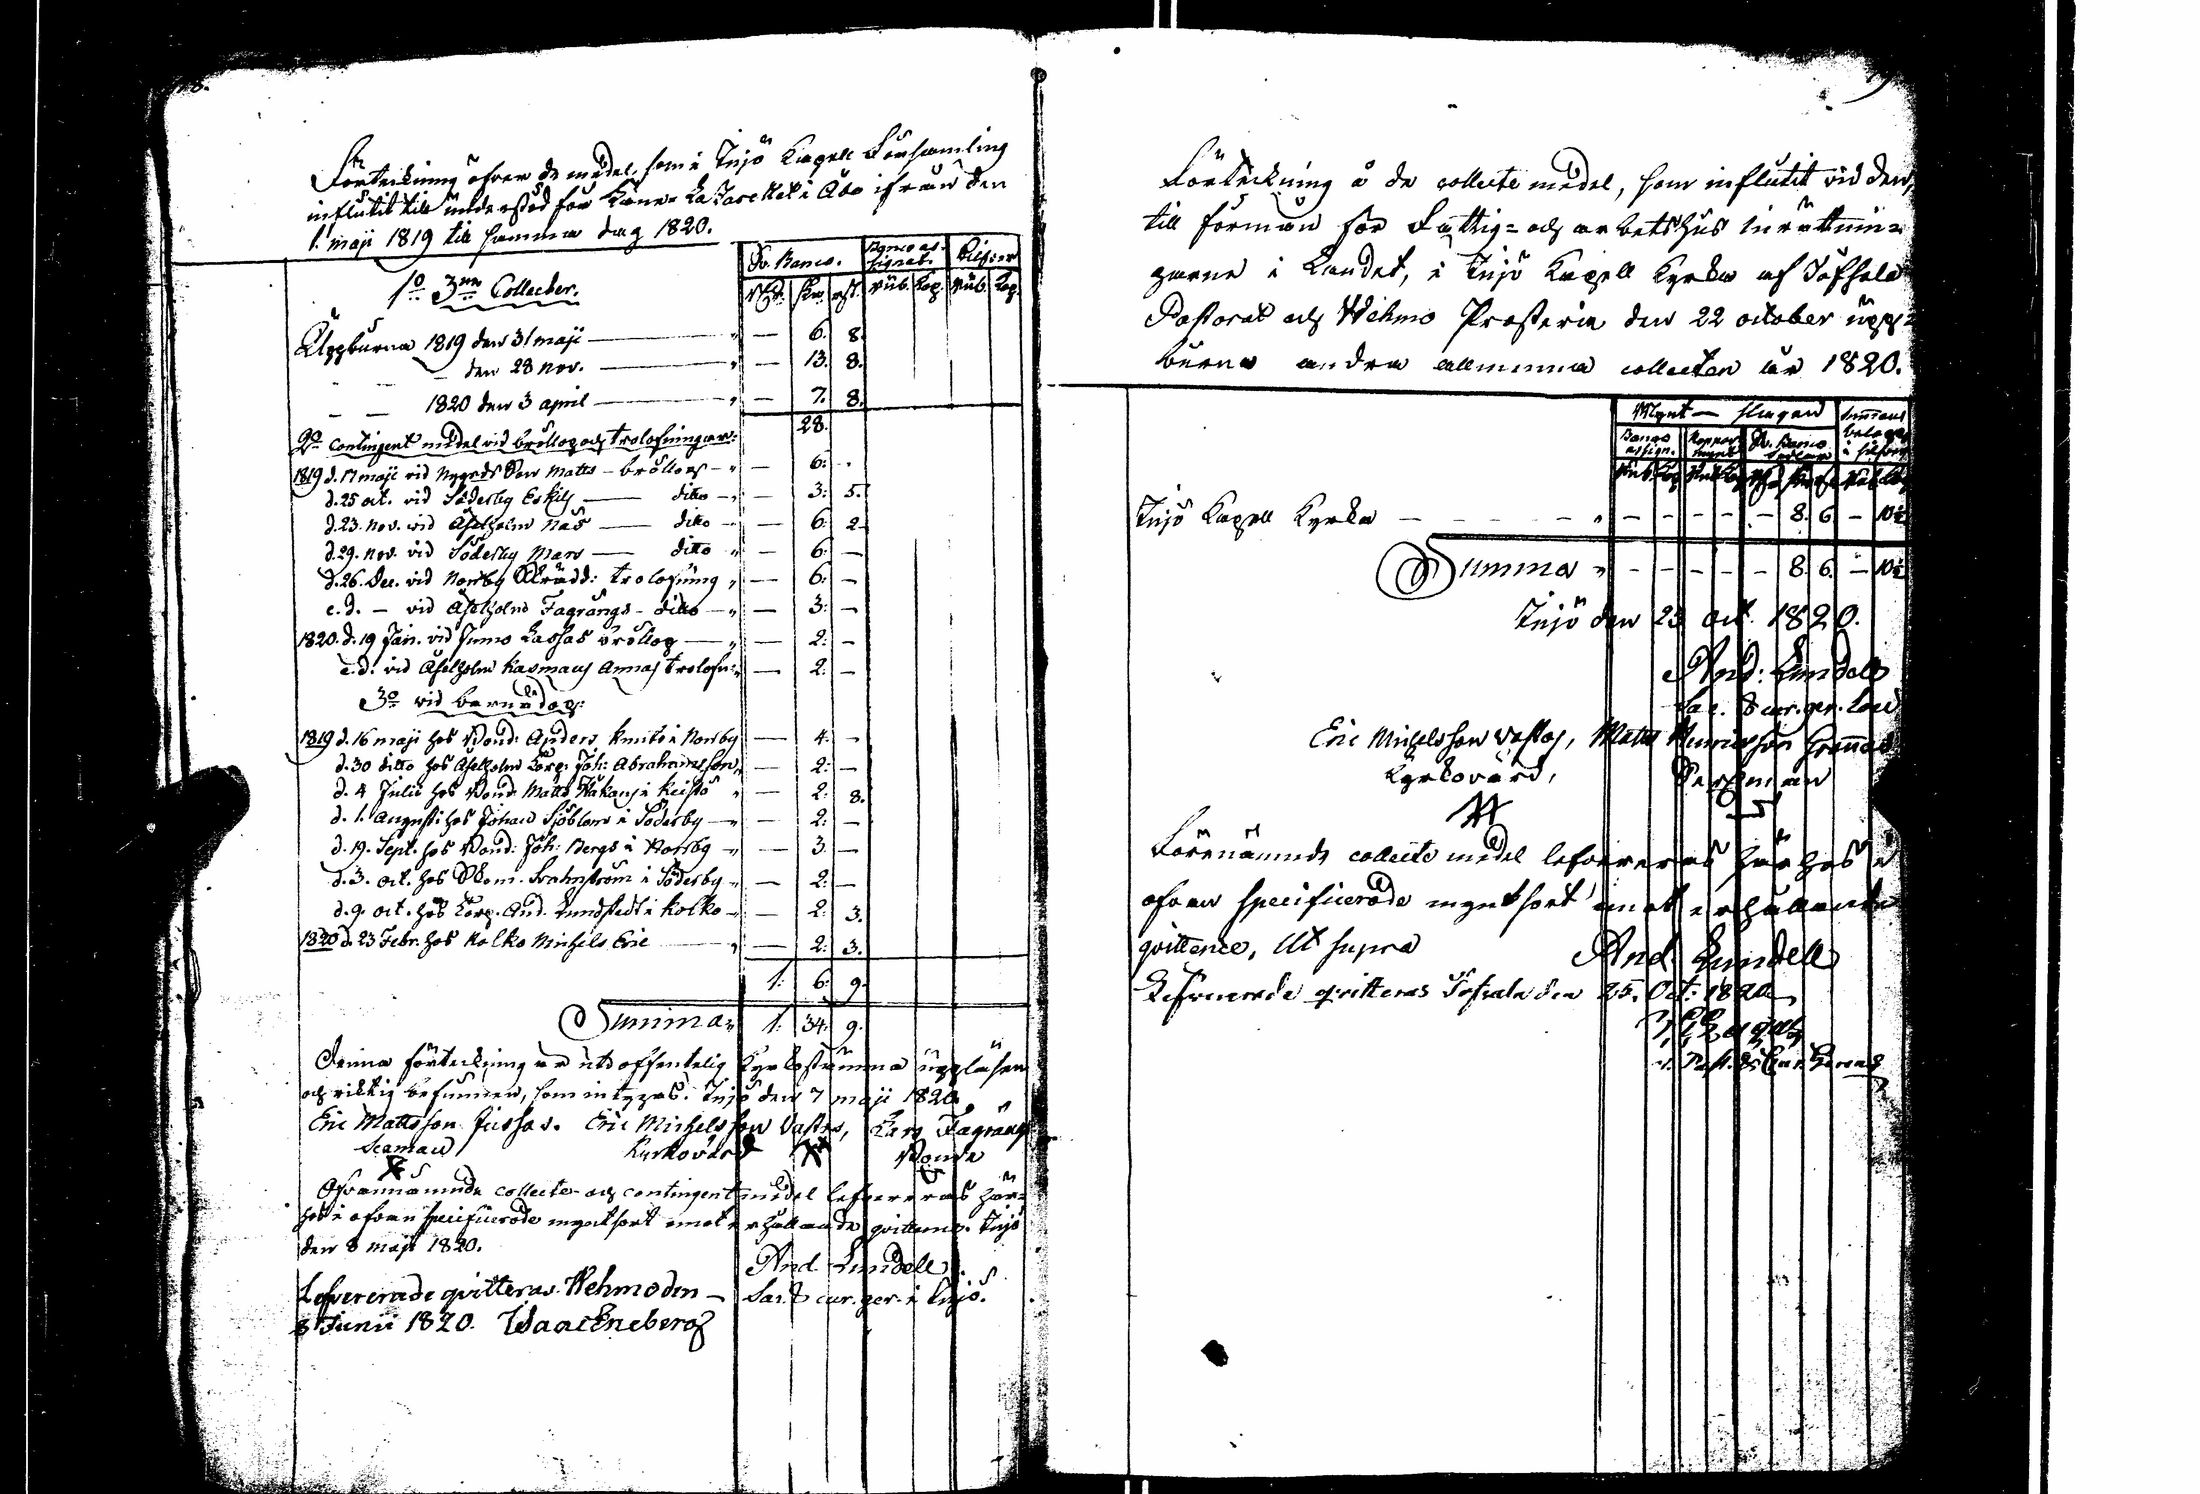 Förteckning öfver de medel, som i Iniö Kapell Församling
influtit till understöd för Läns-Lazarettet i Åbo ifrån den
1. maji 1819 till samma dag 1820.
Sv. Banco. Banco assignat. Silfver
Rd. sk. rst. Rub. Kop. Rub. Kop.
1o 3ne Collecter.
Uppburna 1819 den 31 maji — 6. 8.
den 28 nov. — 13. 8.
1820 den 3 april — 7. 8.
28.
2o Contingent medel vid bröllop och trolofningar:
1819 d. 17 maji vid Nygrds Matts - bröllop — 6. -
d. 25 oct. vid Söderby Eskils — ditto — 3. 5.
d. 23. nov. vid Åselholm Näs — ditto — 6. 2.
d. 29. nov. vid Söderby Mans — ditto — 6. —
d. 26. Dec. vid Norrby Skrädd: trolofning — 6. —
e. d. — vid Åselholm Fagrängs - ditto — 3. —
1820. d. 19 Jan. vid Jumo Lassas bröllop — 2. —
e. d. vid Åselholm Kasmans Annas trolofn: — 2. —
3o vid barnedop:
1819 d. 16 maji hos Bond: Anders Knuts i Norrby — 4. —
d. 30 ditto hos Åselholm Torp: Joh: Abrahamsson — 2. —
d. 4 Julii hos Bond: Matts Håkans i Keistö — 2. 8.
d. 1. Augusti hos Johan Sjöblom i Söderby — 2. —
d. 19. Sept. hos Bond: Joh: Bergs i Norrby — 3. —
d. 3. oct. hos Skom. i Söderby — 2. —
d. 9. oct. hos Torp. And. Lundstedt i Kolko — 2. 3.
1820 d. 23 Febr. hos Kolko Michels Eric — 2. 3.
1. 6. 9.
Summa 1. 34. 9.
Denna förteckning är uti offentelig Kyrkostämma uppläsen
och riktig befunnen, som intygas. Iniö den 7 maji 1820.
Eric Mattsson Jussas. Eric Michelsson Vastas, Lars Fagrängs
Seaman Kyrkovärd Bonde
Ofvannämnde collecte- och contingent medel lefvereras här-
hos i ofvan specificerade myntsort emot erhållande qvittence. Iniö
den 8 maji 1820.
And. Lundell.
Sac. & cur. ger. i Iniö.
Lefvererade qvitteras Wehmo den —
8 Junii 1820. Isaac Eneberg
Förteckning å de collecte medel, som influtit vid den,
till förmån för Fattig- och arbetshus inrättnin-
garne i Landet, i Iniö Kapell Kyrka af Töfsala
Pastorat och Wehmo Prosteri den 22 october upp-
burna andra allmenna collecten år 1820.
Mynt — slagen Summans belopp i silfver
Banco assign. Koppar mynt Sv. Banco
Iniö Kapell Kyrka — — — — — — 8. 6. — 10½
Summa — — — — — — 8. 6. — 10½
Iniö den 23 oct. 1820.
And: Lundell
Sac. & cur. ger. loci
Eric Michelsson Vastas, Matts Henricsson
Kyrkovärd, Sexman
Förenämnde collecte medel lefvereras härhos i
ofvan specificerade myntsort emot erhållande
qvittence, Ut supra And. Lundell
Lefvererade qvitteras Töfsala den 25. Oct: 1820.